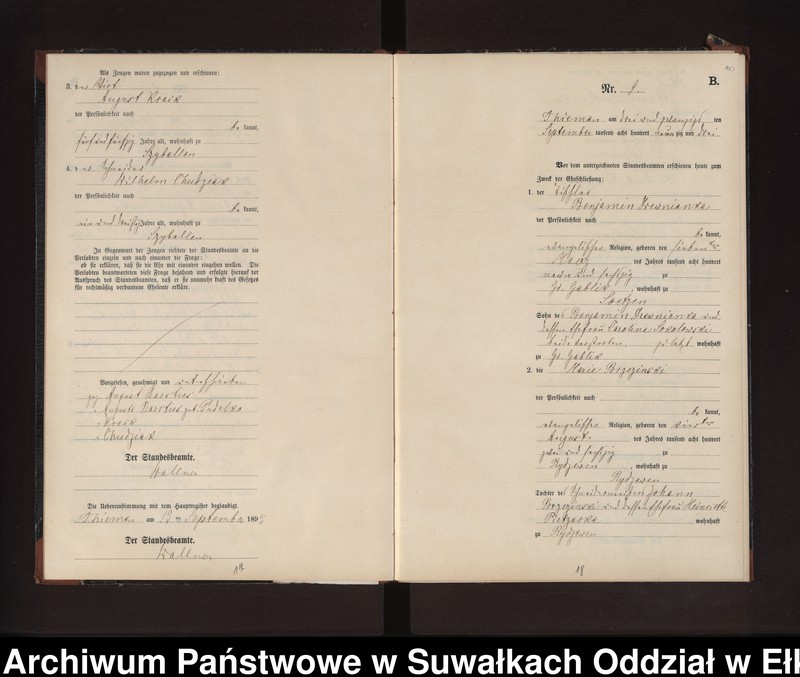 Als Zeugen waren zugezogen und erschienen:
3. der Wirt
August Kraik
der Persönlichkeit nach
be kannt,
Jahre alt, wohnhaft zu
Szyballen
4. der Schneider
Wilhelm Chudziak
der Persönlichkeit nach
be kannt,
ein und dreißig Jahre alt, wohnhaft zu
Szyballen
In Gegenwart der Zeugen richtete der Standesbeamte an die
Verlobten einzeln und nach einander die Frage:
ob sie erklären, daß sie die Ehe mit einander eingehen wollen. Die
Verlobten beantworteten diese Frage bejahend und erfolgte hierauf der
Ausspruch des Standesbeamten, daß er sie nunmehr kraft des Gesetzes
für rechtmäßig verbundene Eheleute erkläre.
Vorgelesen, genehmigt und unterschrieben
gez. August
Auguste geb. Pudelko
Kraik
Chudziak
Der Standesbeamte.
Wallner
Die Uebereinstimmung mit dem Hauptregister beglaubigt.
am September 189
Der Standesbeamte.
Wallner
B.
Nr.
am drei und zwanzigsten ten
September tausend acht hundert neun zig und drei
Vor dem unterzeichneten Standesbeamten erschienen heute zum
Zweck der Eheschließung:
1. der
Benjamin Drewnianka
der Persönlichkeit nach
be kannt,
evangelischer Religion, geboren den siebenten
März des Jahres tausend acht hundert
neun und sechzig zu
Gr. Gablik, wohnhaft zu
Sohn des Benjamin Drewnianka und
dessen Ehefrau Caroline Sokolowski
beide verstorben, zuletzt wohnhaft
zu Gr. Gablik
2. die Marie Brzezinski
der Persönlichkeit nach
be kannt,
evangelischer Religion, geboren den vierten
August des Jahres tausend acht hundert
zwei und sechzig zu
Rydzewen, wohnhaft zu
Rydzewen
Tochter des Johann
Brzezinski und dessen Ehefrau
Pietzarka wohnhaft
zu Rydzewen
18
Archiwum Państwowe w Suwałkach Oddział w Ełk